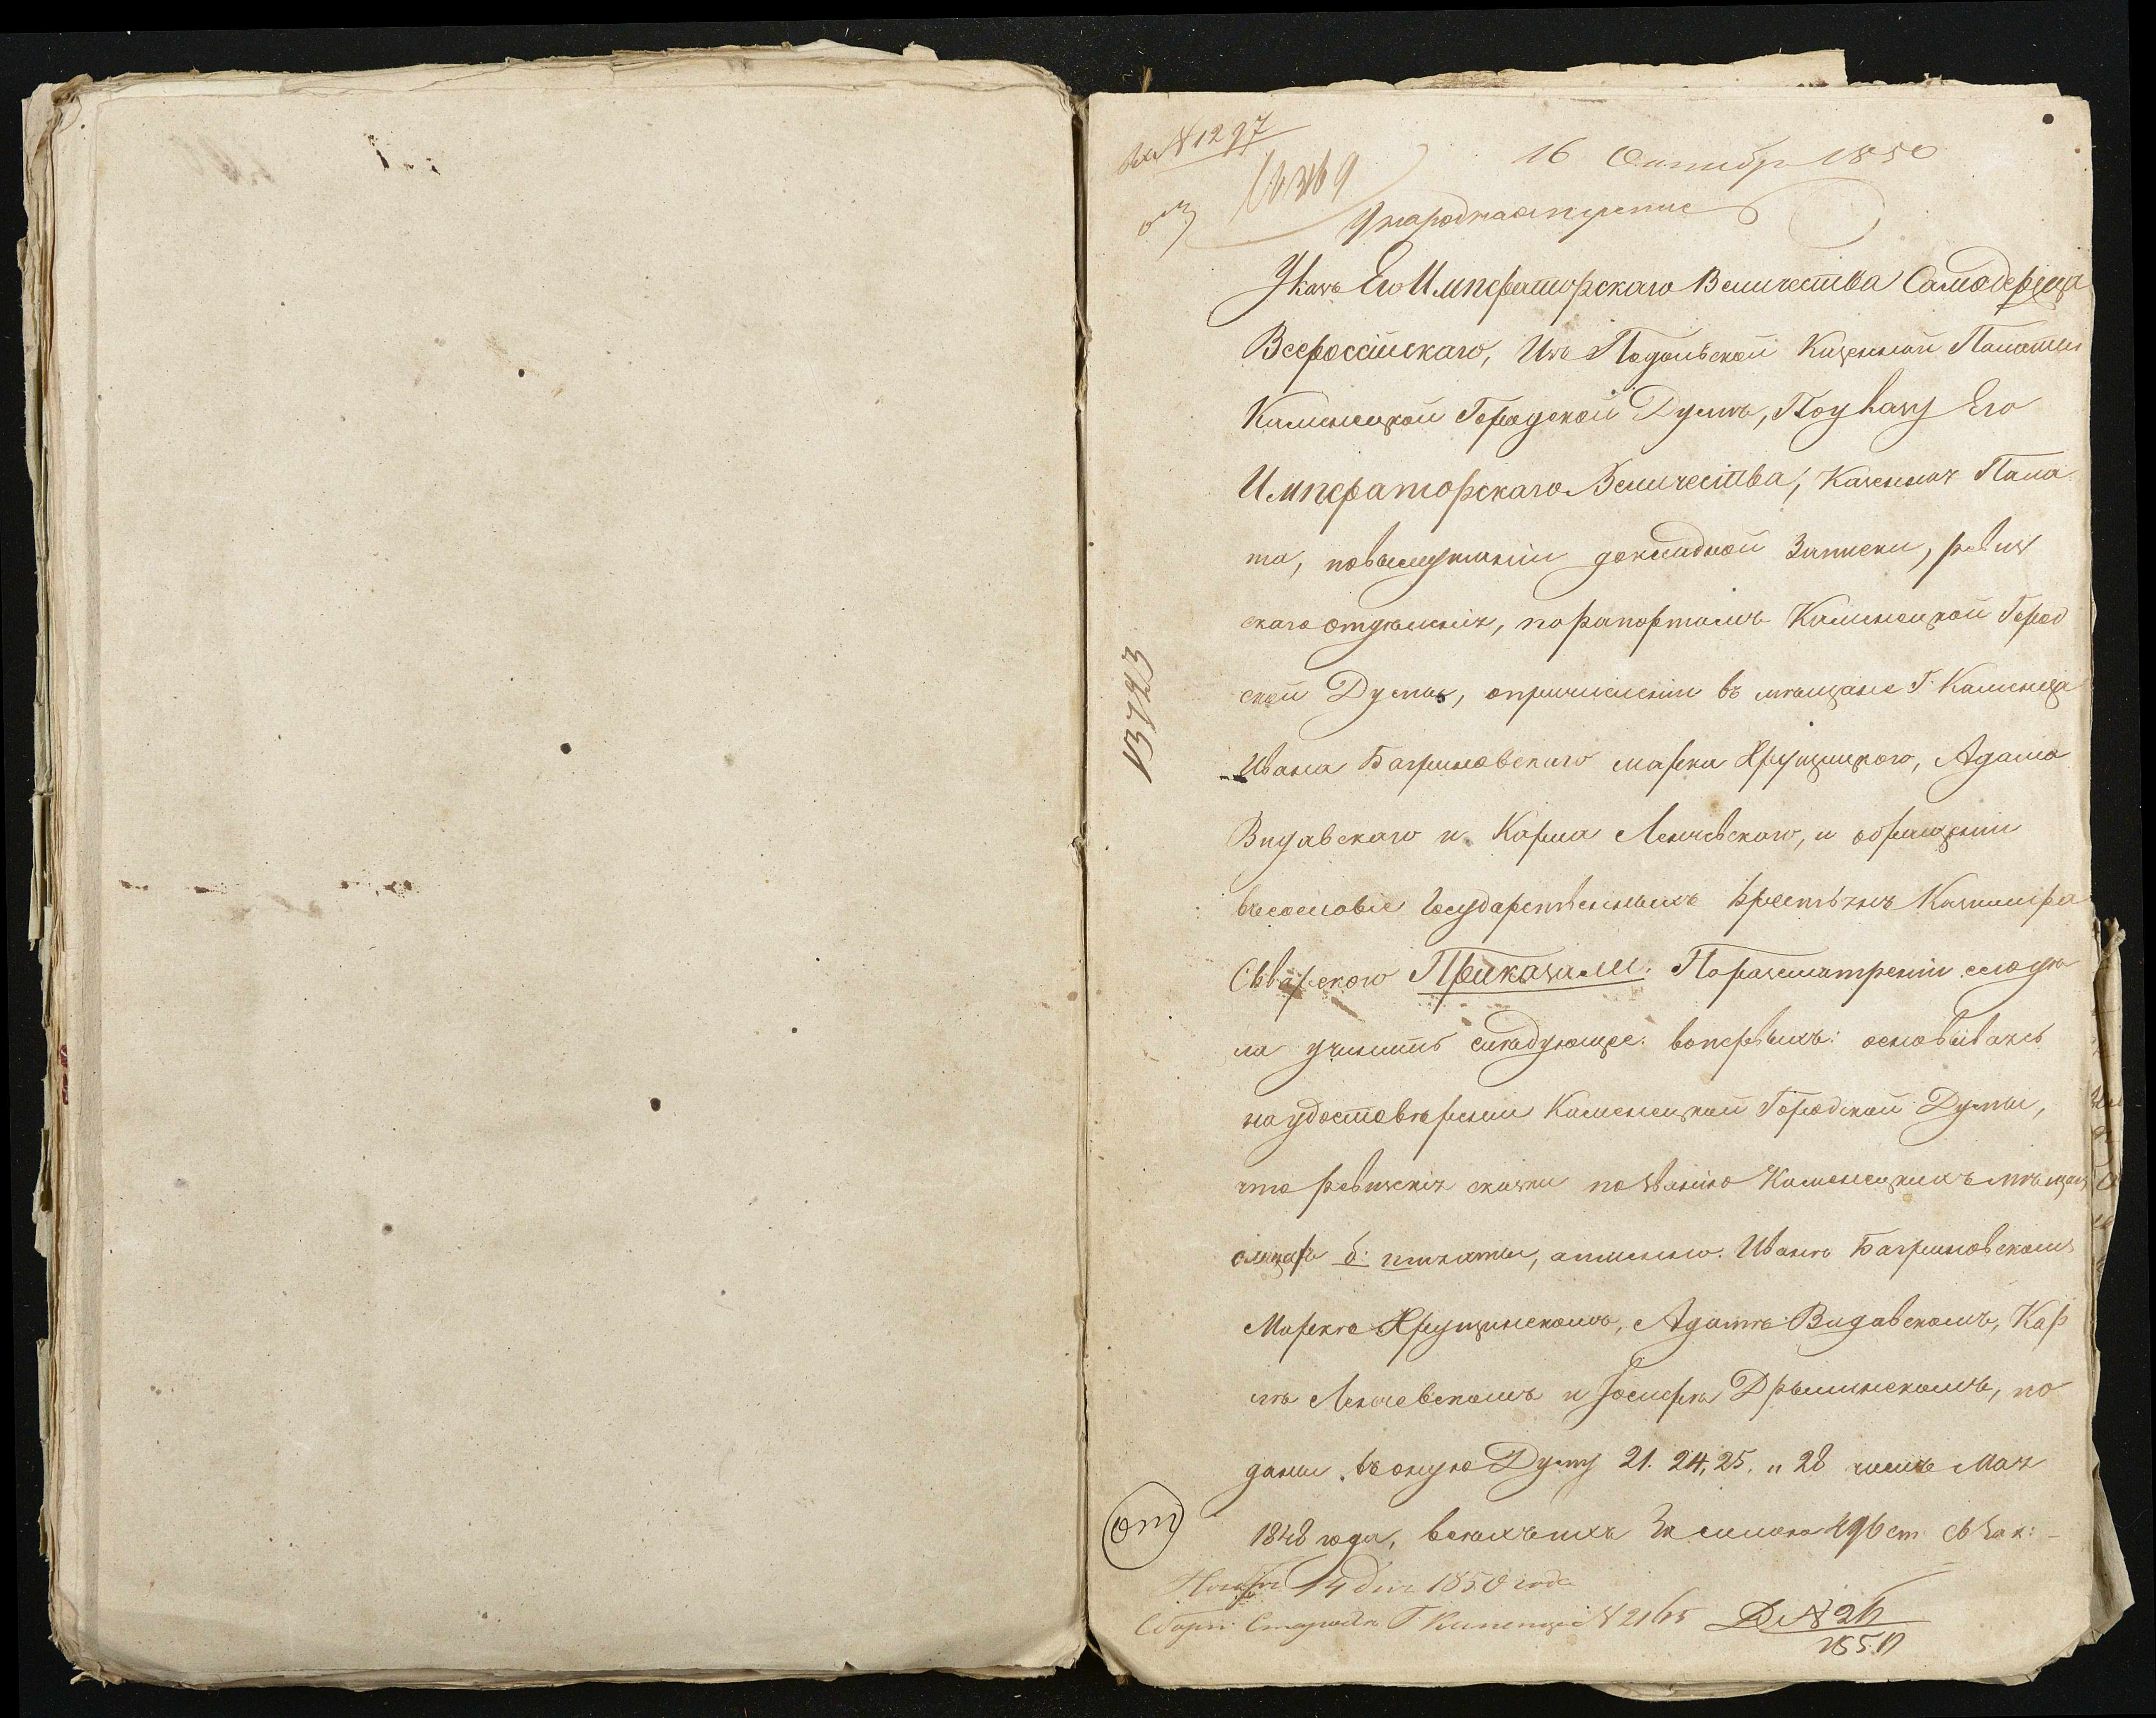 Вх №1297
16 Октябр 1850
Указъ Его Императорскаго Величества Самодержца
Всероссійскаго, Изъ Подольской Казенной Палаты
Каменецкой Городской Думѣ, По указу Его
Императорскаго Величества, Казенная Пала
та, по выслушаніи докладной Записки, ревиз
скаго отдѣленія, по рапортамъ Каменецкой Город
ской Думы, о причисленіи въ мѣщане Г. Каменца
Ивана Багриновскаго Марка Хрущицкого, Адама
Видавскаго и Карла Ленчевскаго, и обращеніи
въ сословіе Государственныхъ Крестьянъ Казимира
Приказали. По разсмотреніи сего дѣ
ла учинить слѣдующее: вопервыхъ: основываясь
на удостовѣреніи Каменецкой Городской Думы,
что ревизскія сказки по званію Каменецкихъ мѣщанъ
а именно: Иванѣ Багриновскомъ
Маркѣ Хрущинскомъ, Адамѣ Видавскомъ, Кар
лѣ Ленчевскомъ и Іосифѣ Дрылинскомъ, по
даны въ оную Думу 21. 24, 25. и 28 числъ Мая
1848 года, всѣхъ ихъ За силою 496 ст св Зак:
от
Ноября 14 дня 1850 года
Сборн. Старостѣ Г Каменца № 2165
Д № 26
1850
13723